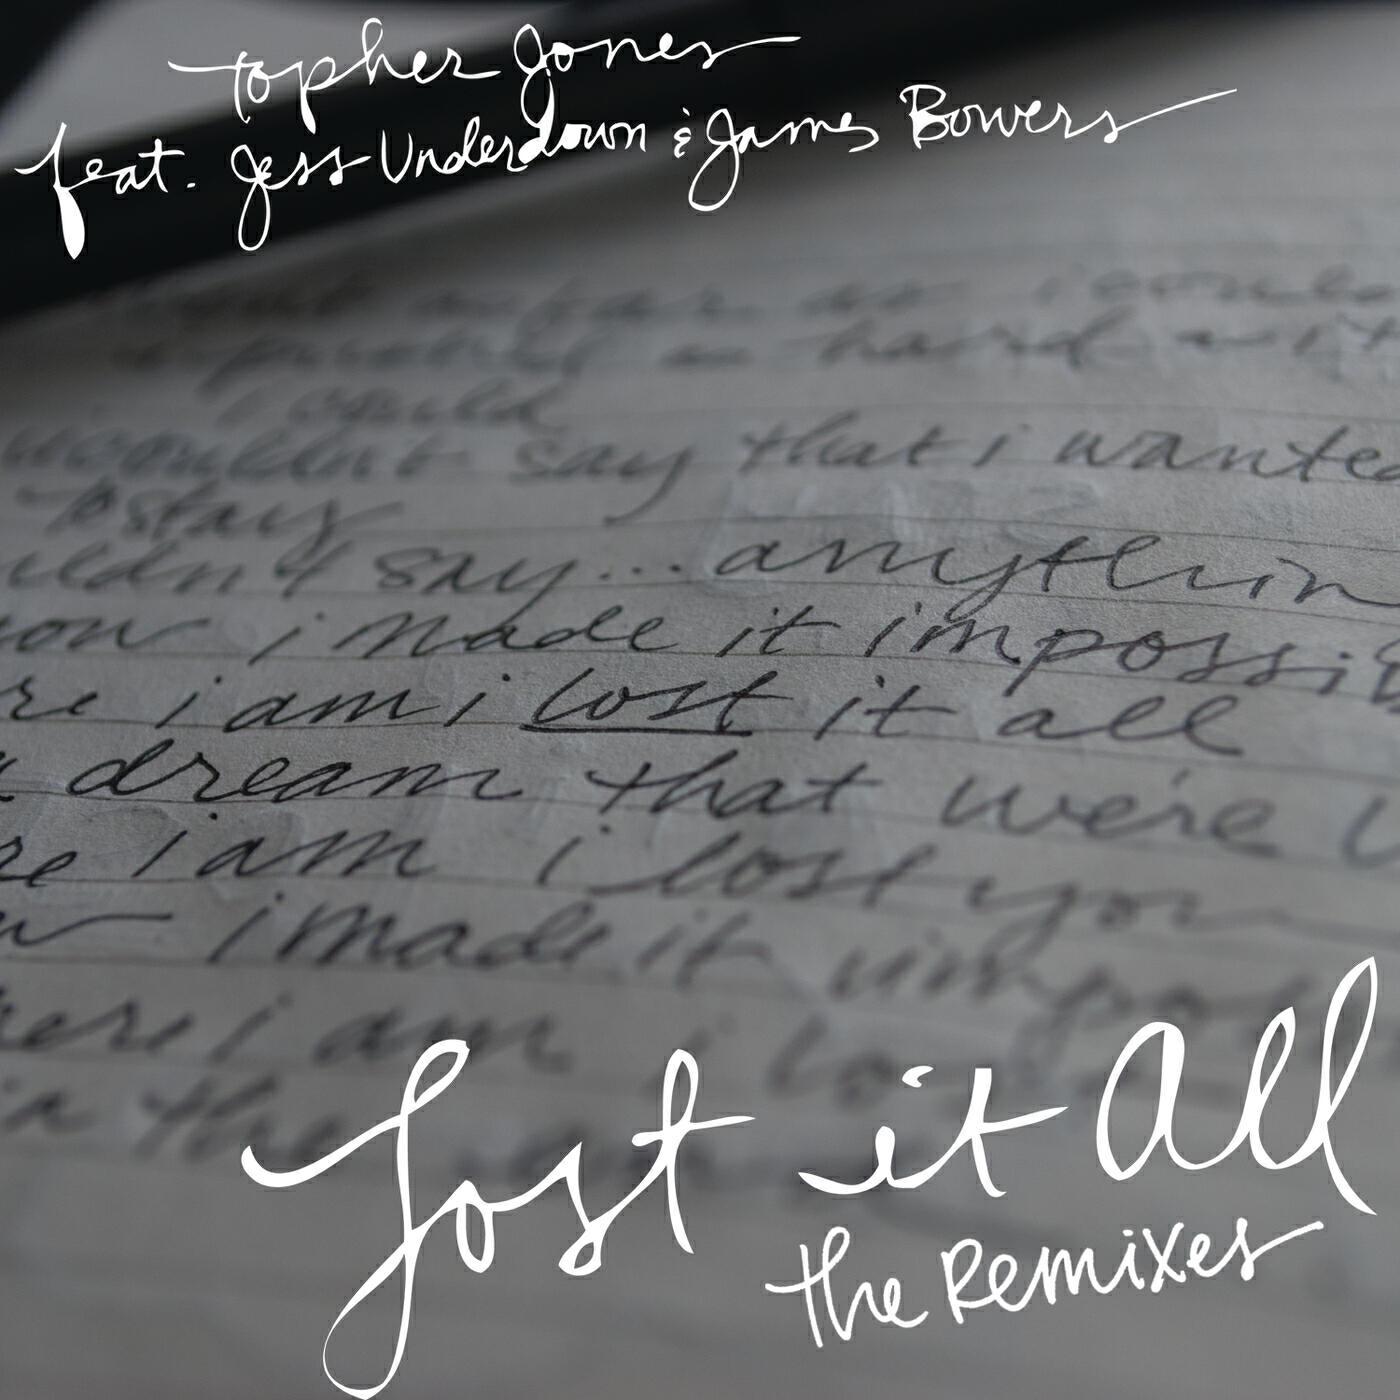 topher Jones
feat. Jess Underdown & James Bowers
as i could
hard
i could
couldn't say that i wanted
to stay
say... anythin
now i made it impossib
re i am i lost it all
dream that we're
re i am i lost you
w i made it impo
here i am i lo
in the
Lost it All
the Remixes